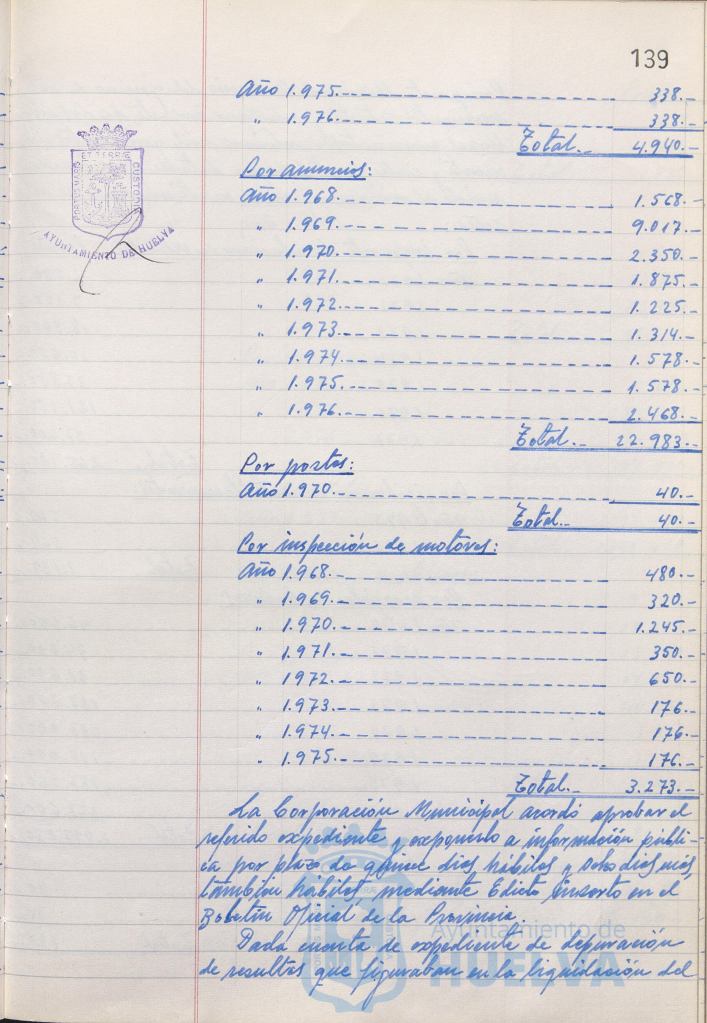 139
Año 1.975.- 338.-
" 1.976.- 338.-
Total.- 4.940.-
PORTUS MARIS ET TERRÆ CUSTODIA
AYUNTAMIENTO DE HUELVA
Por anuncios:
Año 1.968.- 1.568.-
" 1.969.- 9.017.-
" 1.970.- 2.350.-
" 1.971.- 1.875.-
" 1.972.- 1.225.-
" 1.973.- 1.314.-
" 1.974.- 1.578.-
" 1.975.- 1.578.-
" 1.976.- 2.468.-
Total.- 22.983.-
Por postes:
Año 1.970.- 40.-
Total.- 40.-
Por inspección de motores:
Año 1.968.- 480.-
" 1.969.- 320.-
" 1.970.- 1.245.-
" 1.971.- 350.-
" 1972.- 650.-
" 1.973.- 176.-
" 1.974.- 176.-
" 1.975.- 176.-
Total.- 3.273.-
La Corporación Municipal acordó aprobar el
referido expediente y exponerlo a información públi-
ca por plazo de quince días hábiles y ocho días más,
también hábiles, mediante Edicto inserto en el
Boletín Oficial de la Provincia.
Dada cuenta de expediente de depuración
de resultas que figuraban en la liquidación del
Ayuntamiento de
HUELVA